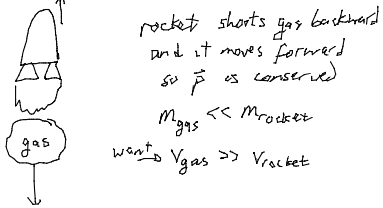 rocket shoots gas backward
and it moves forward
so p⃗ is conserved
m_gas << m_rocket
want → v_gas >> v_rocket
gas